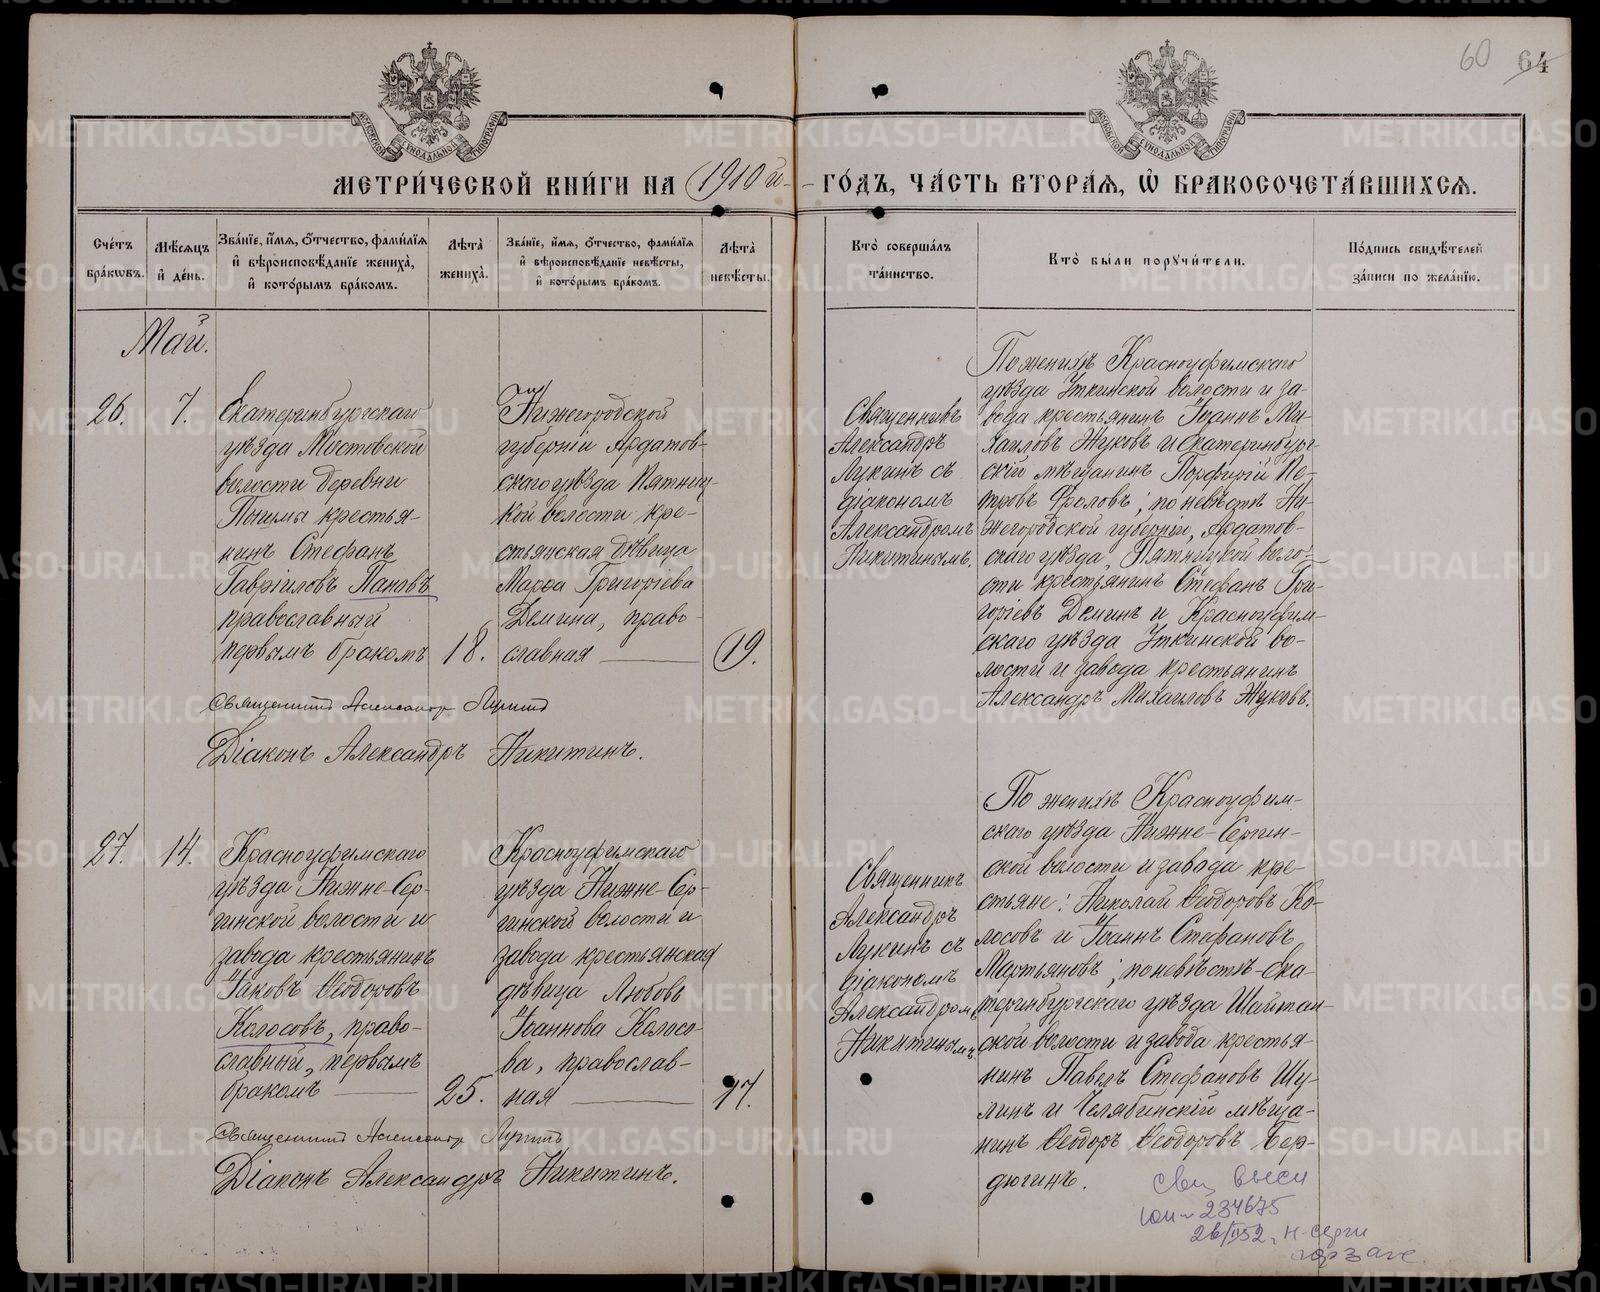 60 64
МЕТРИЧЕСКОЙ КНИГИ НА 1910й ГОДЪ, ЧАСТЬ ВТОРАЯ, Ѿ БРАКОСОЧЕТАВШИХСЯ.
Счетъ браковъ.
Мѣсяцъ и день.
Званіе, имя, отчество, фамилія и вѣроисповѣданіе жениха, и которымъ бракомъ.
Лѣта жениха.
Званіе, имя, отчество, фамилія и вѣроисповѣданіе невѣсты, и которымъ бракомъ.
Лѣта невѣсты.
Кто совершалъ таинство.
Кто были поручители.
Подпись свидѣтелей записи по желанію.
Май.
26.
7.
Екатеринбургскаго
уѣзда Мостовской
волости деревни
крестья-
нинъ Стефанъ
Гавріиловъ Пановъ
православный
первымъ бракомъ
18.
Нижегородской
губерніи Ардатов-
скаго уѣзда Пятниц-
кой волости кре-
стьянская дѣвица
Марѳа Григоріева
Демина, право-
славная
19.
Священникъ
Александръ
Лукинъ съ
діакономъ
Александромъ
Никитинымъ.
По женихѣ Красноуфимскаго
уѣзда Уткинской волости и за-
вода крестьянинъ Іоаннъ Ми-
хаиловъ Жуковъ и Екатеринбург-
скій мѣщанинъ Порфирій Пе-
тровъ Фроловъ; по невѣстѣ Ни-
жегородской губерніи, Ардатов-
скаго уѣзда, Пятницкой воло-
сти крестьянинъ Стефанъ Гри-
горіевъ Деминъ и Красноуфим-
скаго уѣзда Уткинской во-
лости и завода крестьянинъ
Александръ Михаиловъ Жуковъ.
Священникъ Александр Лукинъ
Діаконъ Александръ Никитинъ.
27.
14.
Красноуфимскаго
уѣзда Нижне-Сер-
гинской волости и
завода крестьянинъ
Іаковъ Ѳеодоровъ
Колосовъ, право-
славный, первымъ
бракомъ
25.
Красноуфимскаго
уѣзда Нижне-Сер-
гинской волости и
завода крестьянская
дѣвица Любовь
Іоаннова
ва, православ-
ная
17.
Священникъ
Александръ
Лукинъ съ
діакономъ
Александромъ
Никитинымъ
По женихѣ Красноуфим-
скаго уѣзда Нижне-Сергин-
ской волости и завода кре-
стьяне: Николай Ѳеодоровъ Ко-
лосовъ и Іоаннъ Стефановъ
Мартьяновъ; по невѣстѣ-Ека-
теринбургскаго уѣзда Шайтан-
ской волости и завода крестья-
нинъ Павелъ Стефановъ Шу-
линъ и Челябинскій мѣща-
нинъ Ѳеодоръ Ѳеодоровъ Бер-
дюгинъ.
Священникъ Александр Лукинъ
Діаконъ Александръ Никитинъ.
234675
METRIKI.GASO-URAL.RU